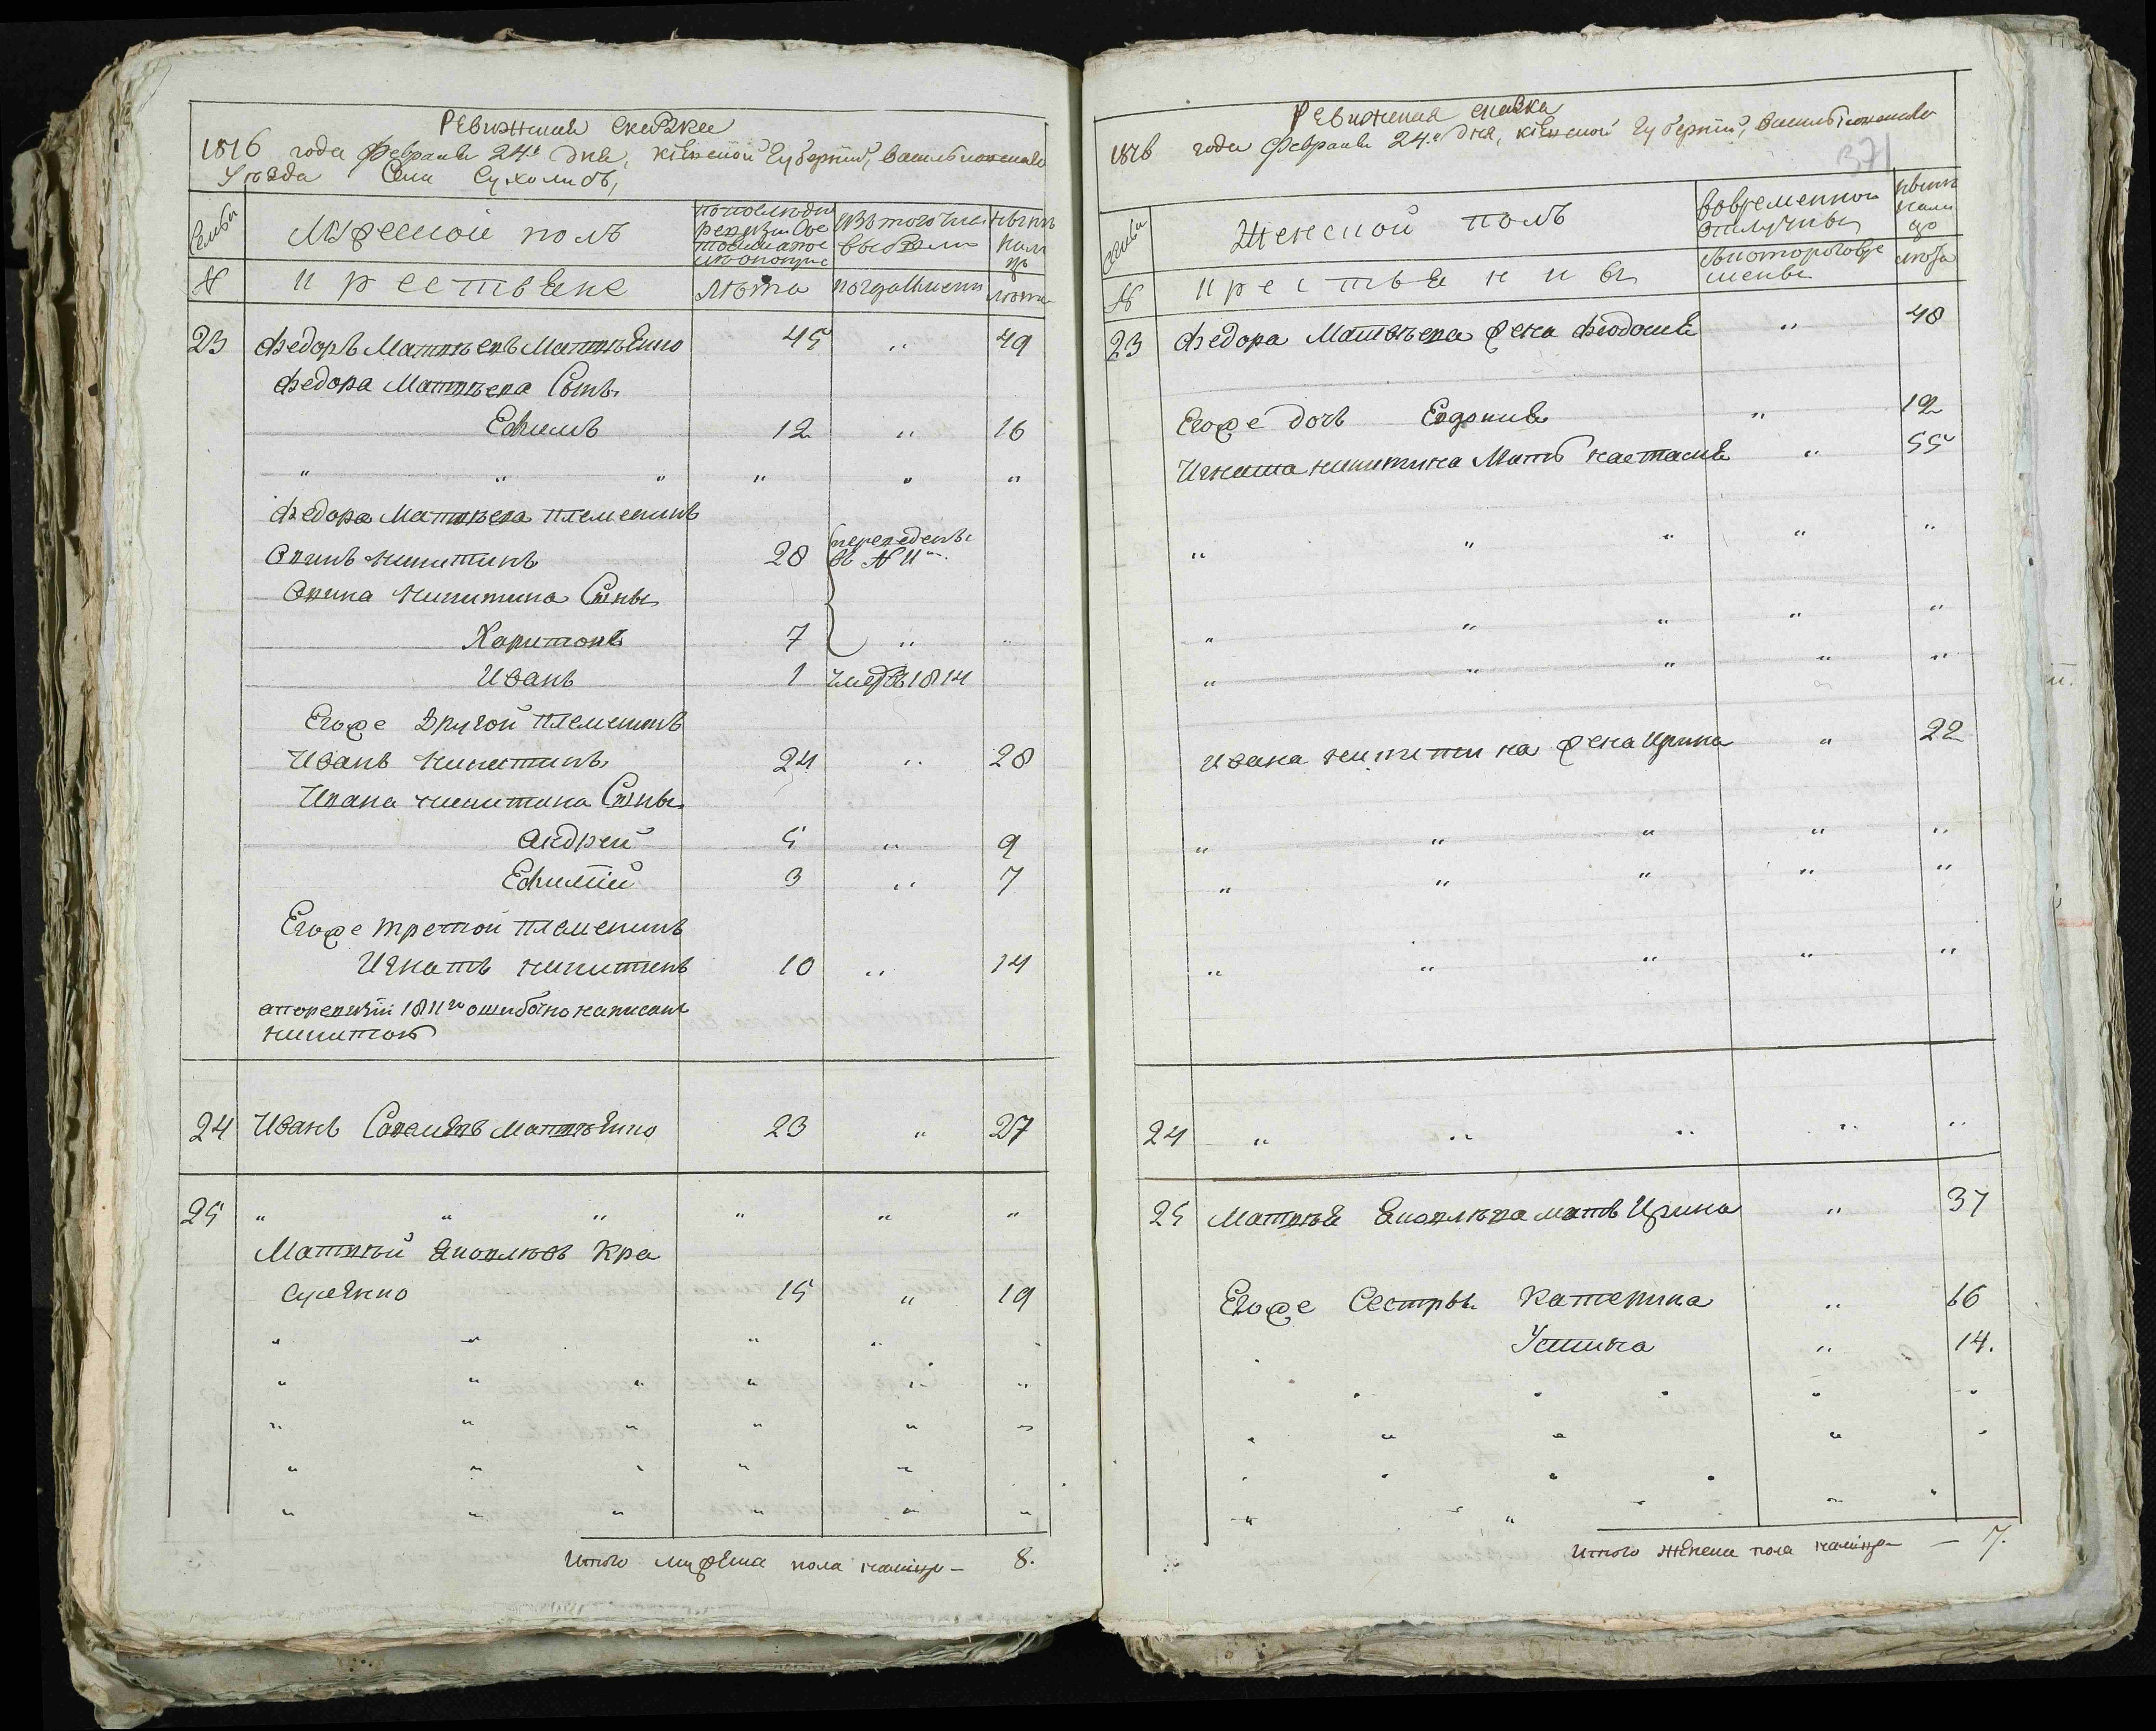 Ревизная сказка
1816 года Февраля 24.го дня, Кіевской Губерніи, Васильковскаго
Уѣзда Села Сухолисъ,
Семьи
Мужеской полъ
по последней ревизіи
изъ того числа выбыли
нынѣ на лицо
№
крестьяне
лѣта
когда именно
лѣта
23 Федоръ Матвѣевъ Матвѣенко 45 " 49
Федора Матвѣева Сынъ
Ефимъ 12 " 16
" " " " " "
Федора Матвѣева племеникъ
Акимъ Никитинъ 28 переведенъ
въ № 11
Акима Никитина Сыны
Харитонъ 7 " "
Иванъ 1 умеръ 1814
Егоже Другой племеникъ
Иванъ Никитинъ 24 " 28
Ивана Никитина Сыны
Андрей 5 " 9
Ефимій 3 " 7
Егоже третой племеникъ
Игнатъ Никитинъ 10 " 14
а по ревизіи 1811го ошибочно написанъ
Никитою
24 Иванъ Савельевъ Матвѣенко 23 " 27
25 " " " " " "
Матвѣй Яковлѣвъ Кра
суленко 15 " 19
Итого мужеска пола налицо — 8.
Ревизная сказка
1816 года Февраля 24.го дня, Кіевской Губерніи, Васильковскаго
371
Семьи
Женской полъ
Во временной отлучкѣ
нынѣ на лицо
№
крестьянки
съ котораго времени
лѣта
23 Федора Матвѣева жена Феодосія " 48
Егоже дочь Евдокия " 12
Игната Никитина Мать Настасія " 55
" " " " "
" " " " "
" " " " "
Ивана Никитина жена Ирина " 22
" " " " "
" " " " "
" " " " "
24 " " " " "
25 Матвѣя Яковлѣва мать Ирина " 37
Егоже Сестры Катерина " 16
Устина " 14.
Итого женска пола налицо — 7.